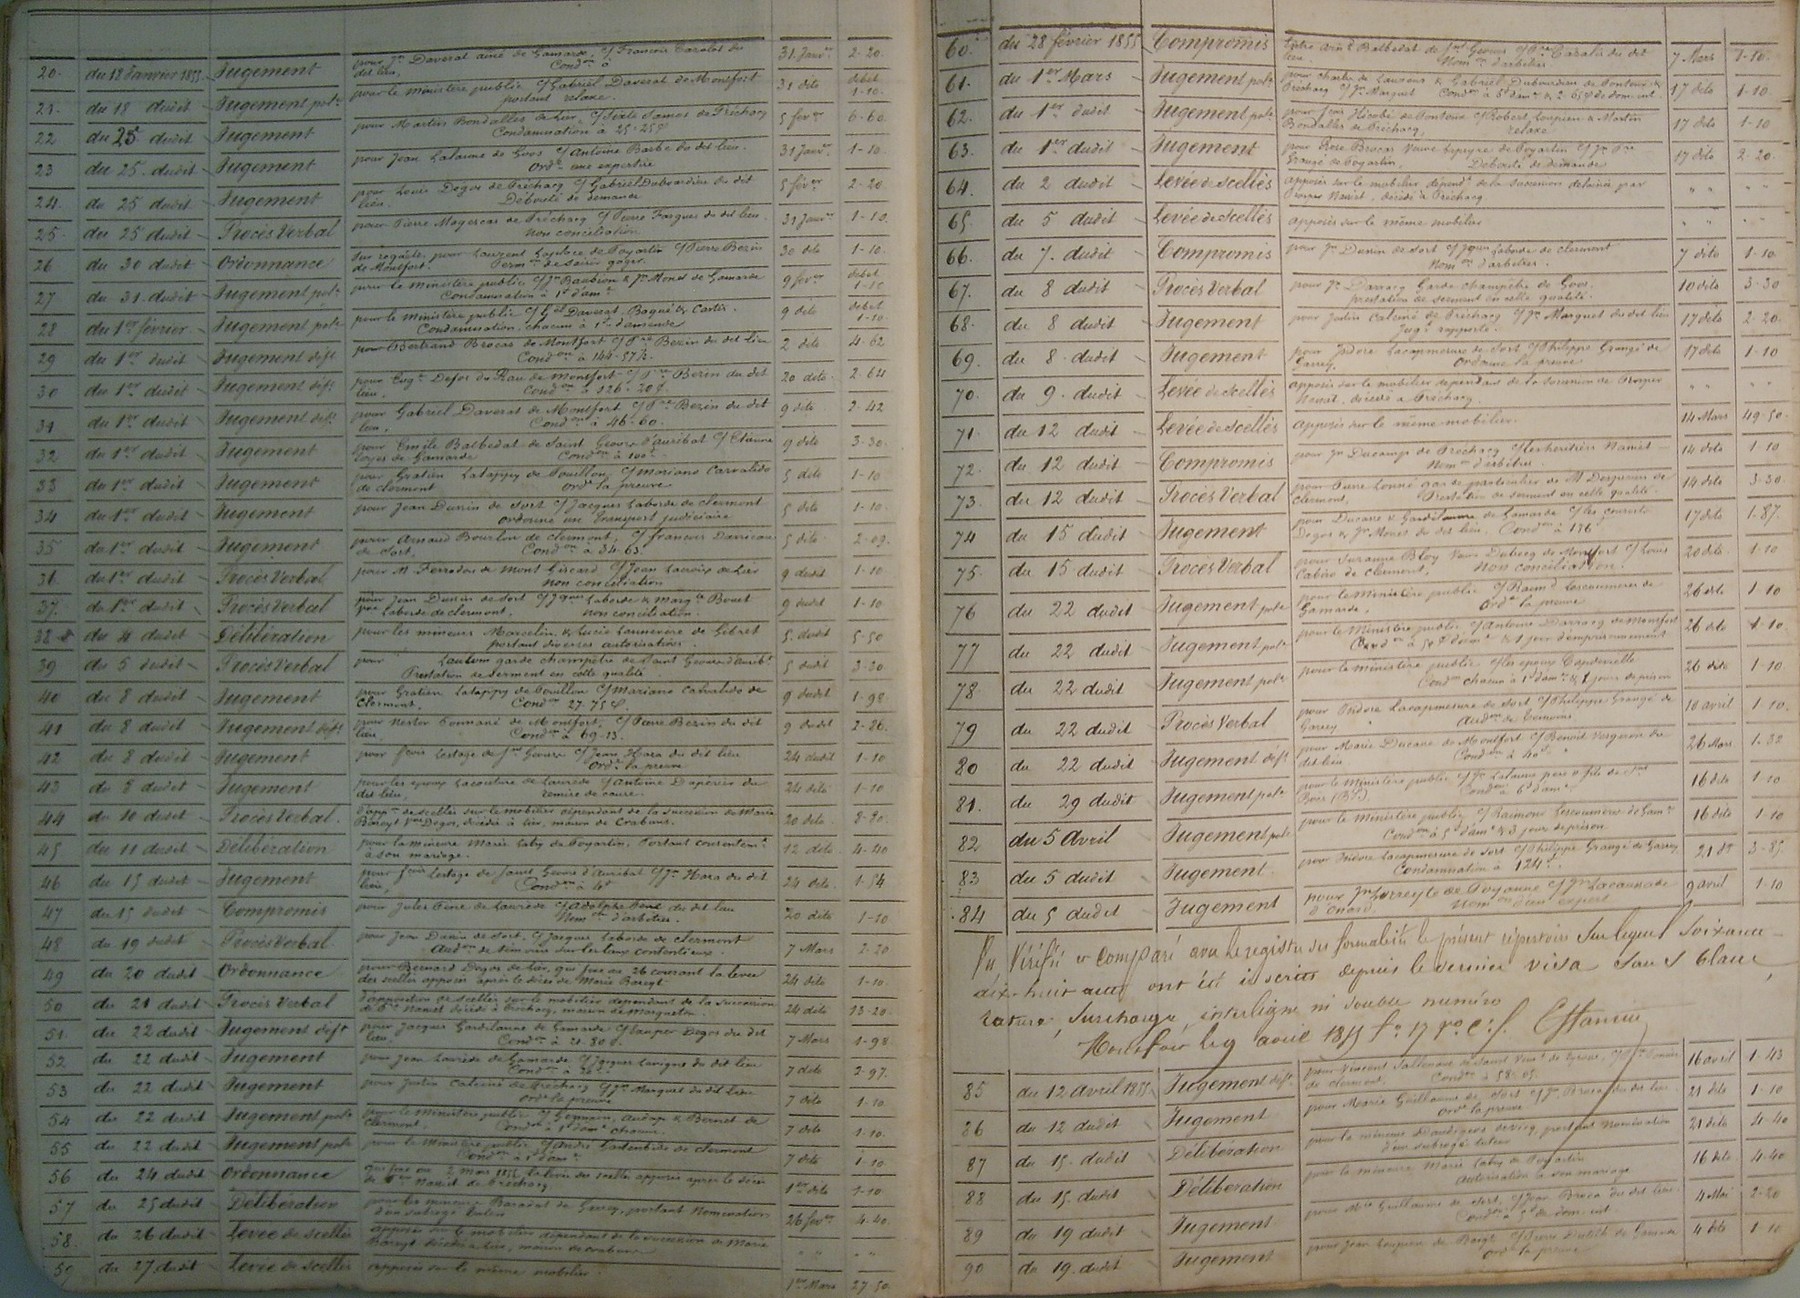 20. du 18 Janvier 1855. Jugement pour Jn Daverat ainé de Gamarde, c/ François Cazalet du 31 Janvr 2-20.
dit lieu. Condon à
21. du 18 dudit Jugement pole pour le ministère public c/ Gabriel Daverat de Montfort 31 dito debet 1-10.
portant relaxe.
22 du 25 dudit Jugement pour Martin Bondalles de Lier, c/ Préchacq 5 fevr 6-60.
Condamnation à 25-25
23 du 25. dudit Jugement pour Jean Lalanne de Goos c/ Antoine Barbe du dit lieu. 31 Janvr. 1-10.
Orde une expertise
24. du 25 dudit Jugement pour Louis Degos de Préchacq c/ Gabriel Dubourdieu du dit 5 fevrer 2-20
lieu. Débouté de demande
25 du 25 dudit Procès Verbal pour Pierre Magescas de Préchacq c/ Pierre Fargues du dit lieu. 31 Janvr 1-10.
Non conciliation
26 du 30 dudit Ordonnance Sur requête, pour Laurent Laplace de Poyartin c/ Pierre Bezin 30 dito 1-10.
de Montfort. Permon de saisir gager.
27 du 31. dudit Jugement pole pour le Ministère public c/ Jn Baubion & Jn Monet de Gamarde 9 fevrer debet 1-10
Condamnation à 1f d'ame
28 du 1er février Jugement pole pour le Ministère public c/ Daverat, Bagué & Cartié. 9 dito debet 1-10.
Condamnation chacun à 1f d'amende
29 du 1er dudit Jugement deft pour Bertrand Brocas de Montfort c/ Pre Bezin du dit lieu 2 dito 4-62
Condon à 144-57
30 du 1er dudit Jugement deft pour Eugne Defos du Rau de Montfort c/ Pre Bezin du dit 20 dito 2-64
lieu. Condon à 126f 20c.
31 du 1er dudit Jugement deft pour Gabriel Daverat de Montfort c/ Pre Bezin du dit 9 dito 2-42
lieu. Condon à 46-60.
32 du 1er dudit Jugement pour Emile Balbedat de Saint Geours d'auribat c/ Etienne 9 dito 3-30.
Loyes de Gamarde Condon à 100f
33 du 1er dudit Jugement pour Gratien Latapy de Pouillon, c/ Mariano Carvalido 5 dito 1-10
de clermont orde la preuve
34 du 1er dudit Jugement pour Jean Dussin de Sort c/ Jacques Laborde de clermont 5 dito 1-10.
ordonne un transport judiciaire.
35 du 1er dudit Jugement pour Arnaud Bourlon de clermont, c/ francois Darricau 5 dito. 2-09.
de Sort. Condon à 34-63
36. du 1er dudit Procès Verbal pour M Ferradou de Mont Giscard c/ Jean Lacroix de Lier 9 dudit 1-10
Non conciliation
37. du 1er dudit Procès Verbal pour Jean Dussin de Sort c/ Jques Laborde & Margte Bouet 9 dudit 1-10
Laborde de clermont. Non conciliation.
38 du 4 dudit Délibération pour les mineurs Marcelin & Lucie Lannevère de Gibret 5. dudit 5-50
portant diverses autorisations.
39 du 5 dudit Procès Verbal pour Laulom garde champêtre de Saint Geours d'auribt 5 dudit 3-30
Prestation de serment en cette qualité
40 du 8 dudit Jugement pour Gratien Latapy de Pouillon c/ Mariano Calvalido de 9 dudit 1-98.
Clermont. Condon 27-75c.
41 du 8 dudit Jugement deft pour Nestor Tonnané de Montfort, c/ Pierre Bezin du dit 9 dudit 2-26.
lieu. Condon à 69-13.
42 du 8 dudit Jugement pour fçois Lestage de St Geours c/ Jean Hara du dit lieu 24 dudit 1-10
Orde la preuve
43 du 8 dudit Jugement pour les epoux Lacouture de Laurède c/ Antoine Dupérier du 24 dito 1-10
dit lieu remise de cause.
44 du 10 dudit Procès Verbal. D'appon de scellés sur le mobilier dépendant de la succession de Marie 20 dito. 8-80.
Bareyt Vve Degos, décédée à Lier, maison de Crabans.
45 du 11 dudit Délibération pour la mineure Marie Laby de Poyartin, Portant consentemt 12 dito 4-40
à son mariage.
46 du 15 dudit Jugement pour fçois Lestage de Saint Geours d'Auribat c/ Jn Hara du dit 24 dito. 1-54
lieu. Condon à 4f
47 du 15 dudit Compromis pour Jules Pène de Laurède c/ Adolphe du dit lieu 20 dito 1-10
Nomon d'arbitres.
48 du 19 dudit Procès Verbal. pour Jean Dussin de Sort. c/ Jacques Laborde de clermont 7 Mars 2-20
Audon de témoins sur les lieux contentieux.
49 du 20 dudit Ordonnance pour Bernard Degos de Lier, qui fixe au 26 courant la levée 24 dito 1-10.
des scellés apposés après le décès de Marie Bareyt
50 du 21 dudit Procès Verbal d'apposition de scellés sur le mobilier dependant de la succession 24 dito 13-20.
de Nassiet décédé à Préchacq, maison de Marqueton.
51. du 22 dudit Jugement deft pour Jacques Gardilanne de Gamarde c/ Degos du dit 7 Mars 1-98
lieu. Condon à 21.80c.
52 du 22 dudit Jugement pour Jean Laurède de Gamarde c/ Jacques Lavigne du dit lieu 7 dito 2-97.
Condon à
53 du 22 dudit Jugement pour Justin Calenié de Préchacq c/ Jn Marquet du dit lieu 7 dito 1-10
Orde la preuve
54 du 22 dudit Jugement pole pour le Ministère public c/ Germain, & Bernet de 7 dito 1-10.
Clermont. Condon à 1f d'ame chacun.
55 du 22 dudit Jugement pole pour le Ministère public c/ André de clermont 7 dito 1-10
Condon à 1f d'ame
56 du 24 dudit Ordonnance qui fixe au 2 Mars 1855, la levée des scellés apposés après le décès 1er dito 1-10
de Nassiet de Préchacq
57 du 25 dudit Délibération pour les mineurs de Garrey, portant Nomination 26 fevrr 4-40.
d'un subrogé tuteur
58. du 26 dudit Levée de scellés apposés sur le mobilier dependant de la succession de Marie " " " "
Bareyt décédée à Lier, maison de Crabans
59 du 27 dudit Levée de scellés apposés sur le même mobilier. 1er Mars 27-50.
60. du 28 février 1855 Compromis Entre Balbedat de St Geours c/ Pre Cazalis du dit 7 Mars 1-10.
lieu. Nomon d'arbitres
61. du 1er Mars Jugement pole pour charles de Laurens & Gabriel Dubourdieu de Pontonx & 17 dito 1-10
Préchacq c/ Jn Marquet Condon à 5f d'ame & 2-65c de dom. int.
62. du 1er dudit Jugement pole pour de Pontonx c/ Robert Loupien & Martin 17 dito 1-10
Bondalles de Préchacq. relaxe
63. du 1er dudit Jugement pour Rose Brocas Veuve de Poyartin c/ Jn Pre 17 dito 2-20.
Grangé de Poyartin. Débouté de demande
64. du 2 dudit Levée de scellés apposés sur le mobilier dépendt de la succession delaissée par " " " "
Prosper Nassiet, décédé à Préchacq
65. du 5 dudit Levée de Scellés apposés sur le même mobilier " " " "
66. du 7. dudit Compromis pour Jn Dussin de Sort c/ Jques Laborde de clermont 7 dito 1-10
Nomon d'arbitres.
67. du 8 dudit Procès Verbal pour Jn Darracq Garde champêtre de Goos. 10 dito 3-30
prestation de serment en cette qualité.
68. du 8 dudit Jugement pour Justin Calenié de Préchacq c/ Jn Marquet du dit lieu 17 dito 2-20.
Jugt rapporté.
69. du 8. dudit Jugement pour Isidore Lacapmesure de Sort c/ Philippe Grangé de 17 dito 1-10
Garrey. Ordonne la preuve
70. du 9. dudit Levée de scellés apposés sur le mobilier dependant de la succession de Prosper " " " "
Nassiet, décédé à Préchacq.
71. du 12 dudit Levée de Scellés apposés sur le même mobilier. 14 Mars 49-50.
72. du 12 dudit Compromis pour Jn Ducamp de Préchacq c/ les heritiers Nassiet 14 dito 1-10
Nomon d'arbitres.
73. du 12 dudit Procès Verbal pour Pierre Lonné garde particulier de M. Desperiers de 14 dito 3-30.
Clermont. Prestation de serment en cette qualité.
74 du 15 dudit Jugement pour Ducasse & Gardilanne de Gamarde c/ les consorts 17 dito 1-87.
Degos & Jn du dit lieu. Condon à 136f
75. du 15 dudit Procès Verbal pour Suzanne Bloy Veuve Dubecq de Montfort c/ Louis 20 dito 1-10
Cabiro de Clermont. Non conciliation.
76 du 22 dudit Jugement pole pour le Ministère public c/ Raimd Lescoumeres de 26 dito 1-10
Gamarde. Orde la preuve
77 du 22 dudit Jugement pole pour le Ministère public c/ Antoine Darracq de Montfort 26 dito 1-10.
Condon à 5f d'ame & 1 jour d'emprisonnement
78. du 22 dudit Jugement pole pour le ministère public c/ les epoux Capdeville 26 dito 1-10
Condon chacun à 1f d'ame & 1 jour de prison
79 du 22 dudit Procès Verbal pour Isidore Lacapmesure de Sort c/ Philippe Grangé de 10 avril 1-10.
Garrey Audon de témoins
80 du 22 dudit Jugement deft pour Marie Ducasse de Montfort c/ Benoit Vergeron du 26 Mars 1-32
dit lieu. Condon à 40f
81. du 29 dudit Jugement pole pour le Ministère public c/ Jn Lalanne père & fils de 16 dito 1-10
Condon à 6f d'ame
82 du 5 Avril Jugement pole pour le Ministère public c/ Raimond Lescoumères de Gamde 16 dito 1-10
Condon à 5f d'ame & 3 jours de prison
83 du 5 dudit Jugement. pour Isidore Lacapmesure de Sort. c/ Philippe Grangé de Garrey 21 do 3-85
Condamnation à 124f.
84 du 5 dudit Jugement pour Jn Larreyte de Poyanne c/ Jn Lacausade 9 avril 1-10
d'Onard. Nomon d'un expert
Vu Vérifié & Comparé avec le registre des formalités le présent répertoire Sur lequel Soixante-
dix-huit actes ont été inscrits depuis le dernier visa Sans blanc,
rature, Surcharge, interligne ni double numéro
Montfort le 9 avril 1855 fo 17 Vo c. 5.
85 du 12 avril 1855 Jugement deft pour Vincent de Saint de c/ 16 avril 1-43
de clermont. Condon à 58-05.
86 du 12 dudit Jugement pour Marie Guilhaume de Sort c/ Jn Broca du dit lieu. 21 dito 1-10
Orde la preuve
87 du 15. dudit Délibération pour le mineurs de Vicq, portant nomination 21 dito 4-40
d'un subrogé tuteur
88 du 15. dudit Délibération pour la mineure Marie Laby de Poyartin 16 dito 4-40
autorisation à son mariage
89 du 19 dudit Jugement pour Mie Guilhaume de Sort, c/ Jean Broca du dit lieu. 4 Mai 2-20
Condon à 5f de dom. int.
90 du 19. dudit Jugement pour Jean c/ Pierre de Gamarde 4 dito 1-10
Orde la preuve